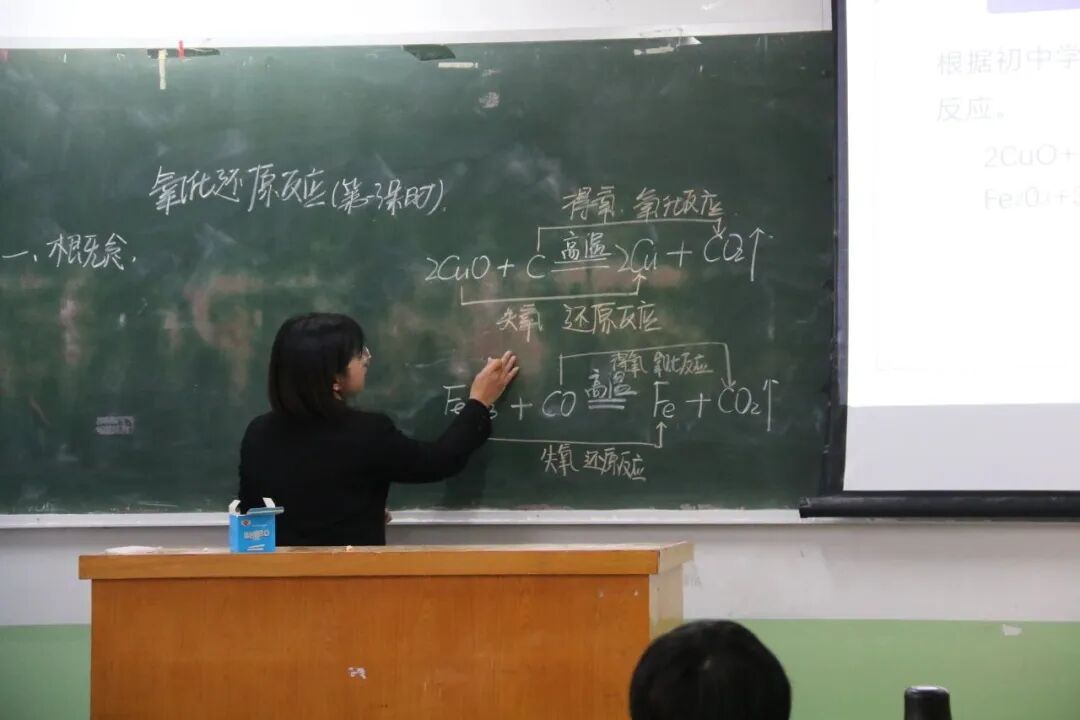 氧化还原反应(第一课时).
一、概念.
得氧 氧化反应
2CuO + C 高温 2Cu + CO2↑
失氧 还原反应
得氧 氧化反应
Fe 3 + CO 高温 Fe + CO2↑
失氧 还原反应
根据初中学
反应。
2CuO+
Fe2O3+3